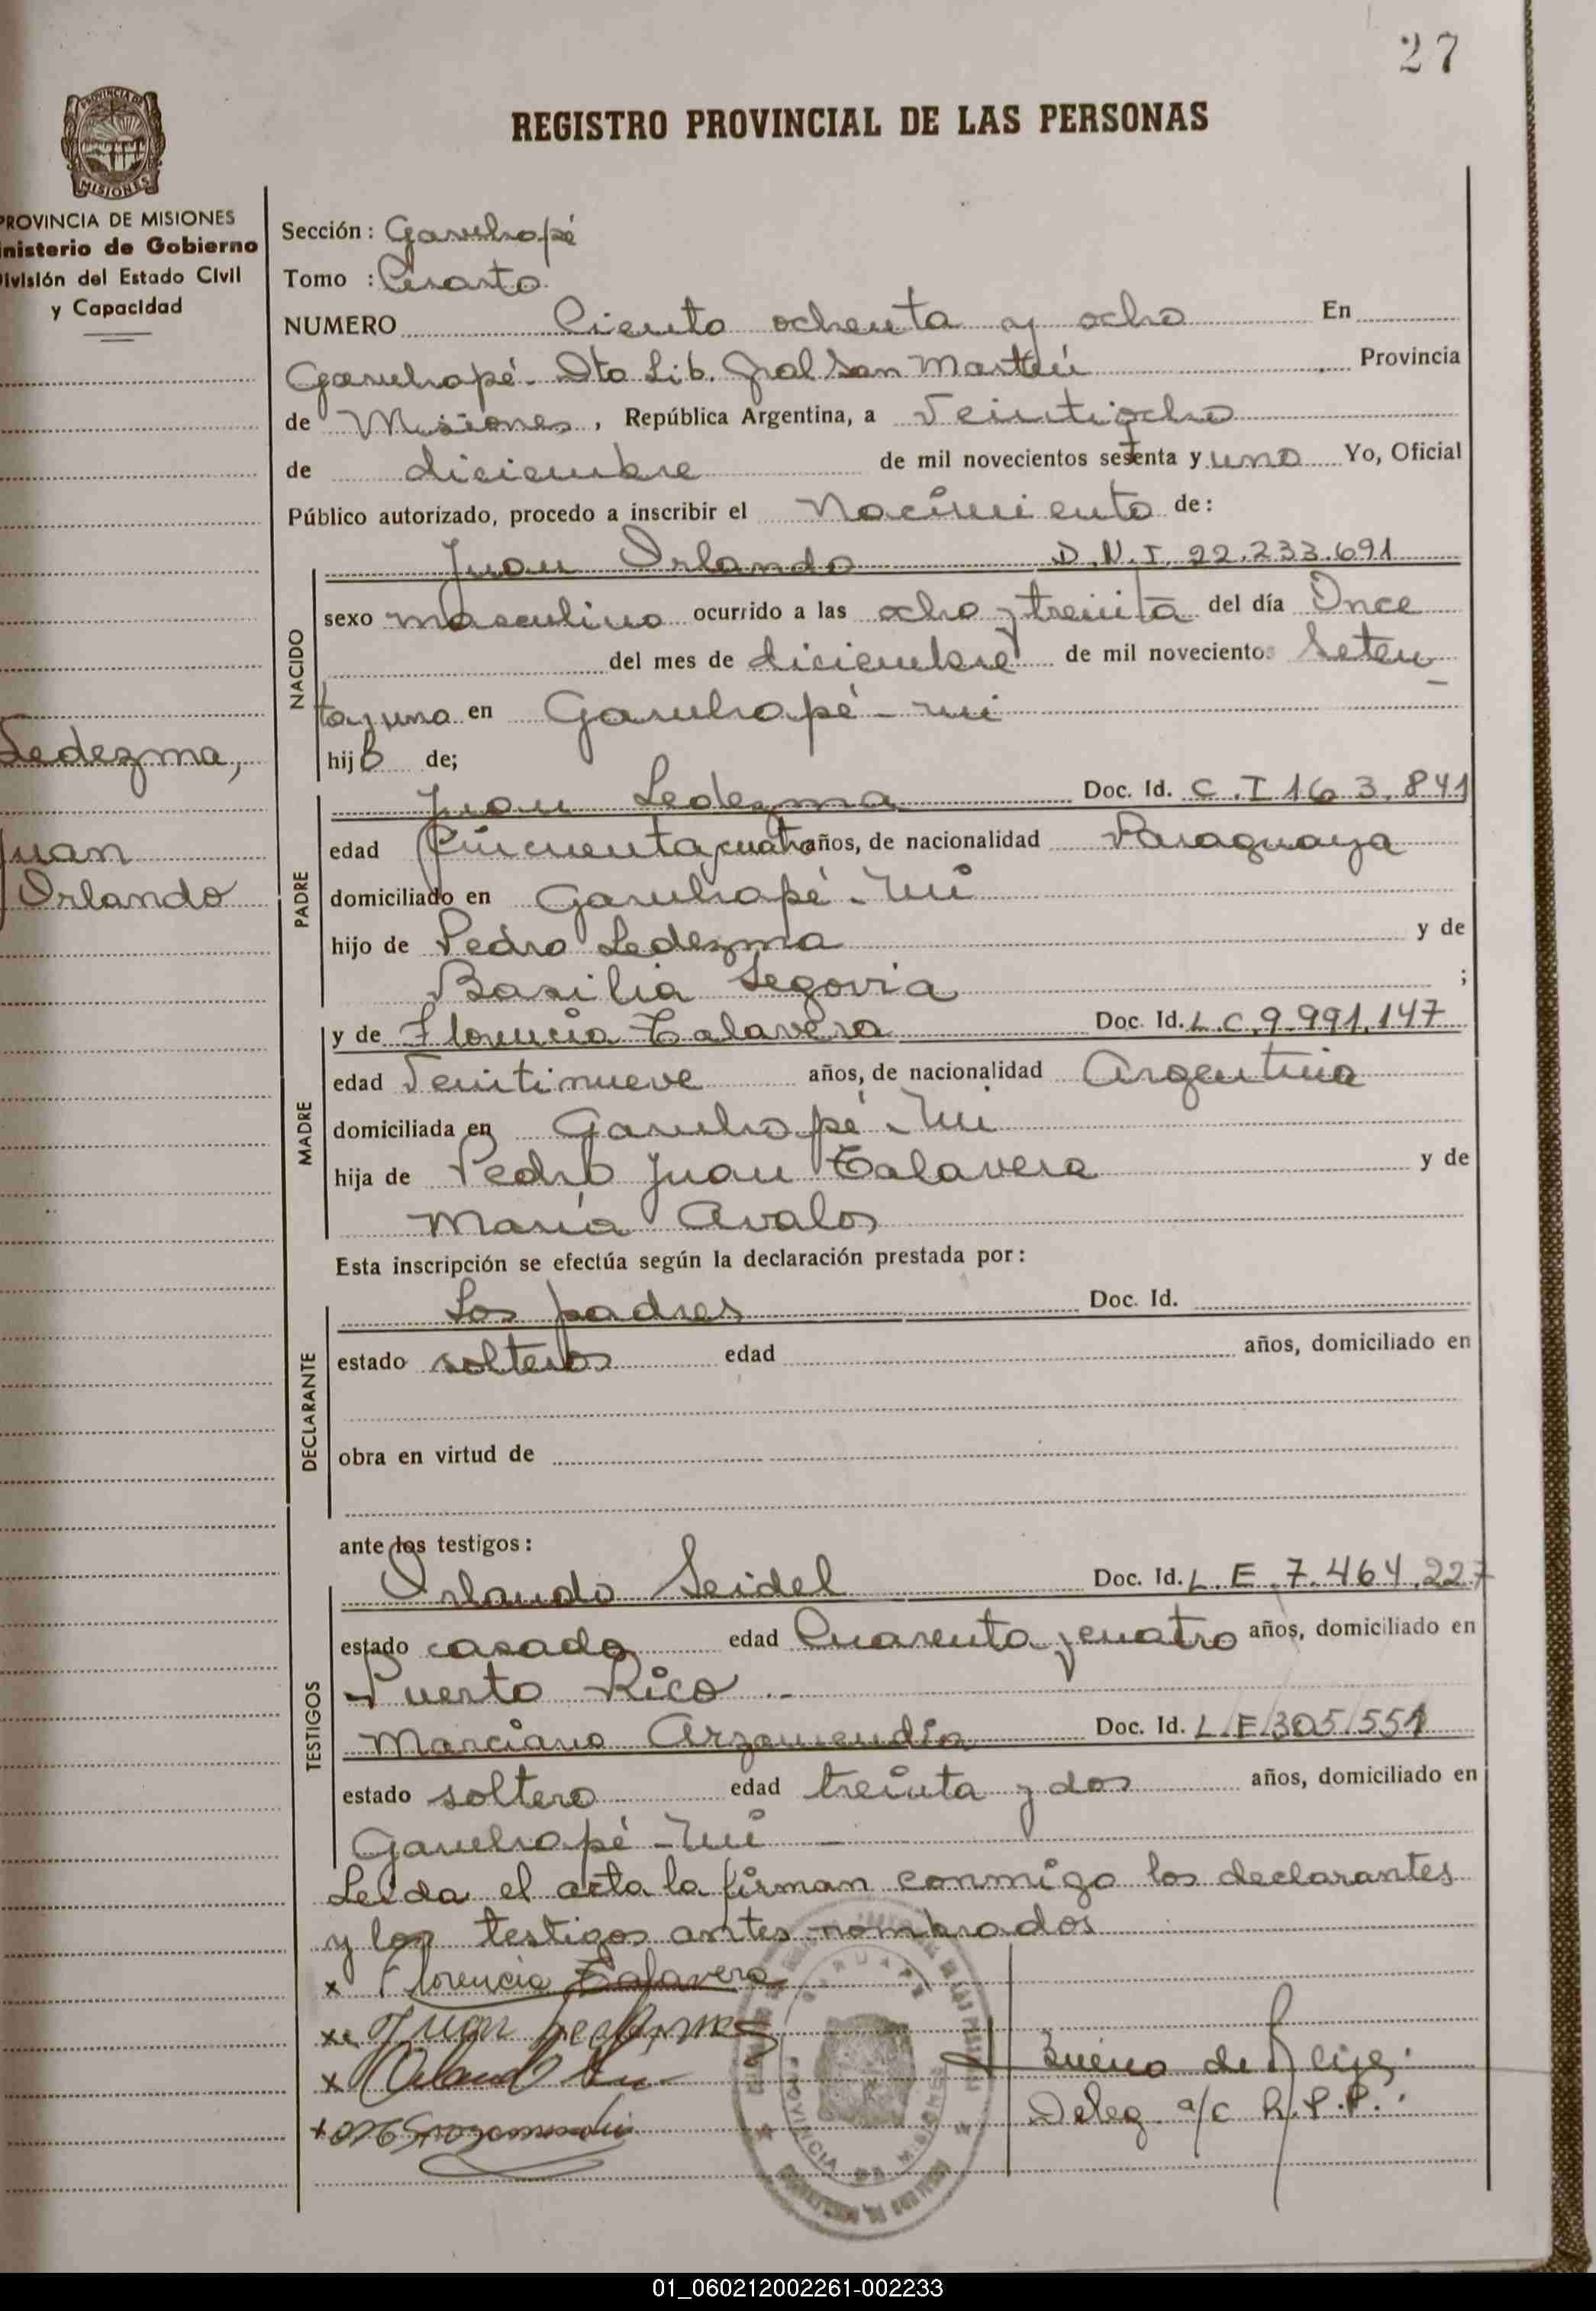 27
REGISTRO PROVINCIAL DE LAS PERSONAS
PROVINCIA DE MISIONES
MISIONES
PROVINCIA DE MISIONES
inisterio de Gobierno
ivisión del Estado Civil
y Capacidad
Ledezma,
Juan
Orlando
Sección: Garuhapé
Tomo : Cuarto
NUMERO Ciento ochenta y ocho En
Garuhapé - Dto Lib. Gral San Martín Provincia
de Misiones, República Argentina, a Veintiocho
de diciembre de mil novecientos setenta y uno Yo, Oficial
Público autorizado, procedo a inscribir el Nacimiento de:
Juan Orlando D.N.I. 22.233.691
NACIDO
sexo masculino ocurrido a las ocho y treinta del día Once
del mes de diciembre de mil novecientos Seten-
ta y uno en Garuhapé - mi
hijo de;
PADRE
Juan Ledezma Doc. Id. C.I 163.841
edad Cincuenta y cuatro años, de nacionalidad Paraguaya
domiciliado en Garuhapé - Mi
hijo de Pedro Ledezma y de
Basilia Segovia ;
MADRE
y de Florencia Talavera Doc. Id. L.C. 9.991.147
edad Veintinueve años, de nacionalidad Argentina
domiciliada en Garuhapé - Mi
hija de Pedro Juan Talavera y de
María Avalos
Esta inscripción se efectúa según la declaración prestada por:
DECLARANTE
Los padres Doc. Id.
estado solteros edad años, domiciliado en
obra en virtud de
ante los testigos:
TESTIGOS
Orlando Seidel Doc. Id. L.E. 7.464.227
estado casado edad Cuarenta y cuatro años, domiciliado en
Puerto Rico
Marciano Arzamendia Doc. Id. L.E 305.551
estado soltero edad treinta y dos años, domiciliado en
Garuhapé - Mi
Leída el acta la firman conmigo los declarantes
y los testigos antes nombrados
x Florencia Talavera
x Juan Ledezma
x Orlando
+ Arzamendia
PROVINCIA DE MISIONES
Deleg. a/c R.P.P.
01_060212002261-002233